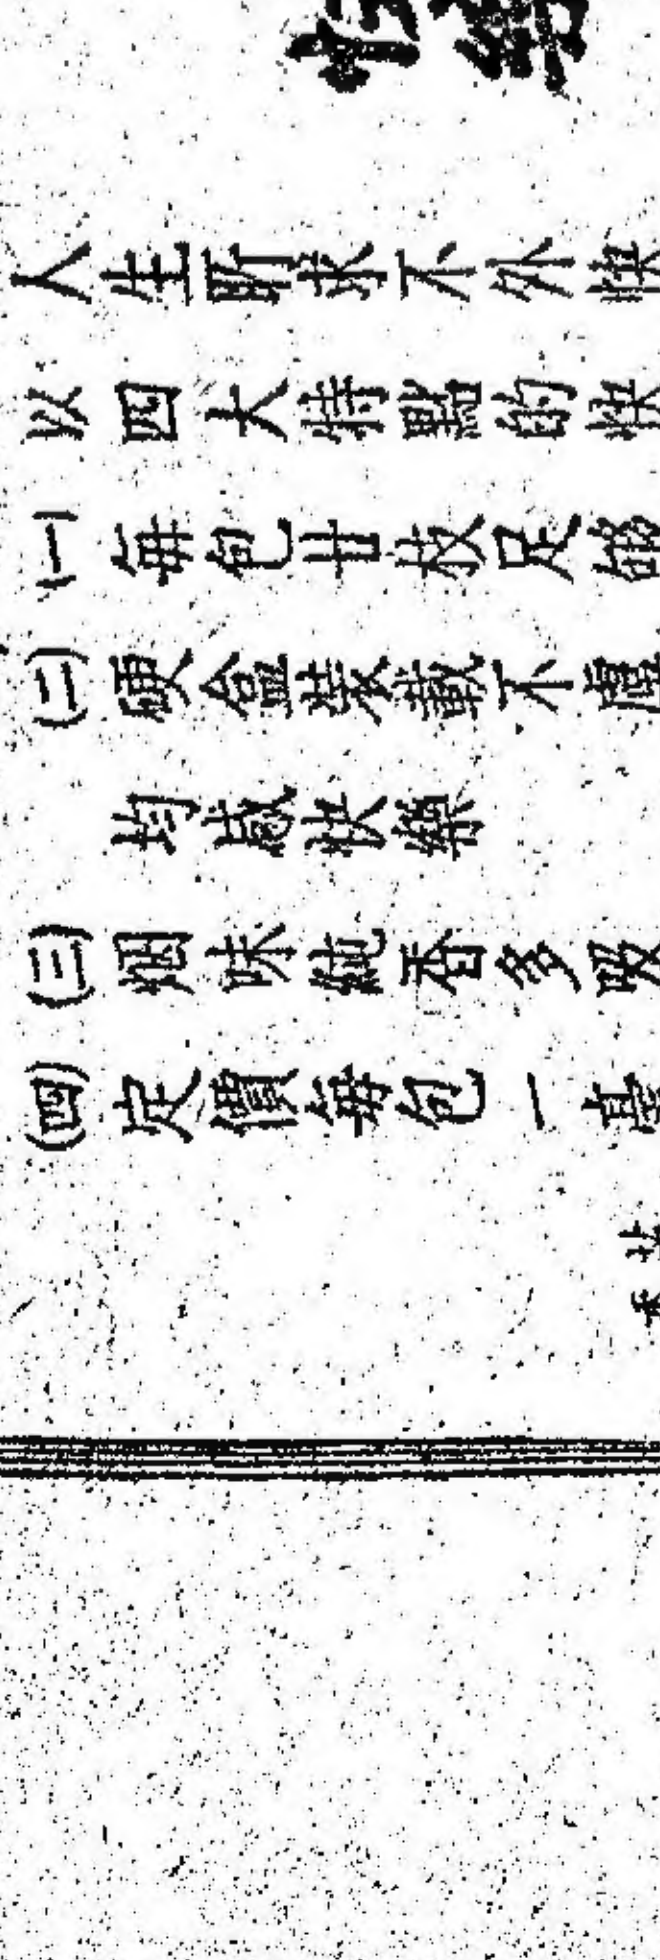 人生所求不外快
以四大特點的快
(一)每包廿枚足
(二)硬盒裝載不
均感快樂
(三)烟味純香多吸
(四)定價每包一